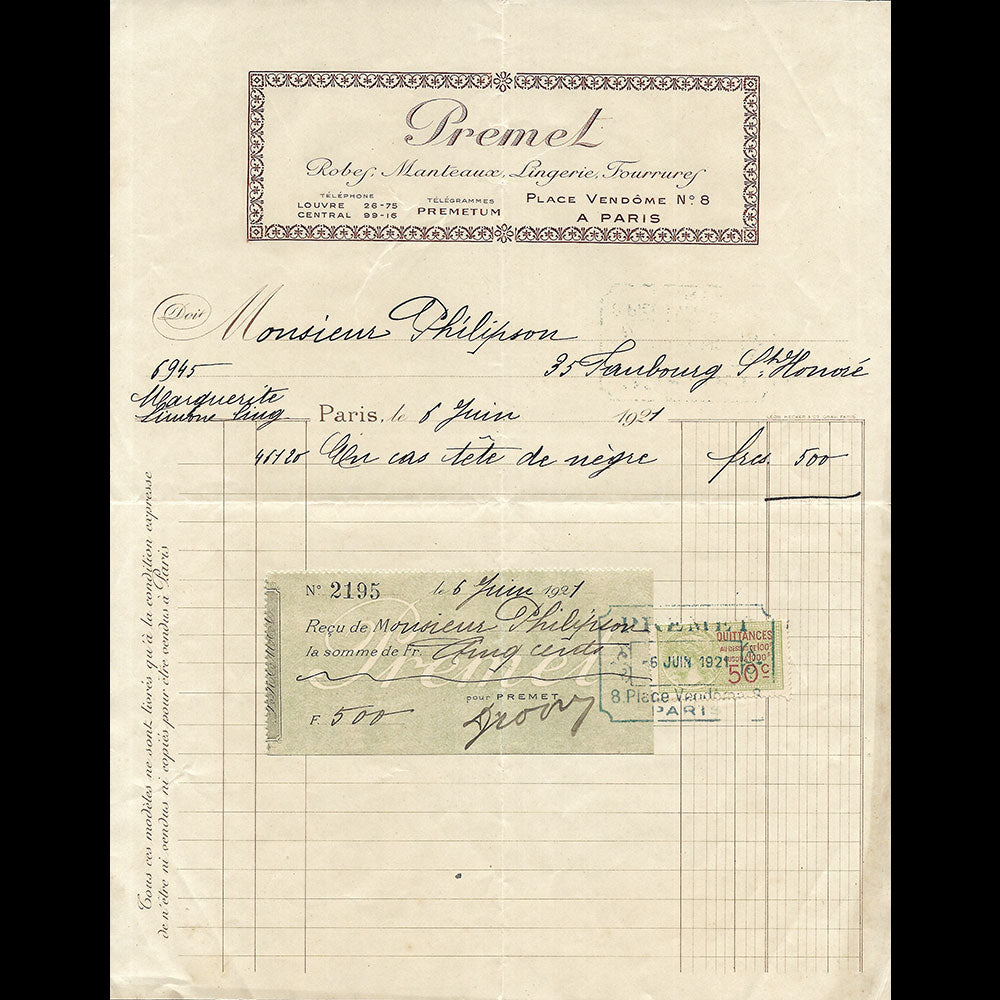 Premet
Robes, Manteaux, Lingerie, Fourrures
TÉLÉPHONE
LOUVRE 26-75
CENTRAL 99-16
TÉLÉGRAMMES
PREMETUM
PLACE VENDÔME Nº 8
A PARIS
Doit Monsieur Philipson
6945
35 Faubourg St. Honoré
Marguerite
Simone Cinq
Paris, le 6 Juin 1921
LÉON HECKER & CIE GRAV. PARIS
46120 En cas tête de nègre frcs. 500
Tous ces modèles ne sont livrés qu'à la condition expresse
de n'être ni vendus ni copiés pour être vendus à Paris
Nº 2195 le 6 Juin 1921
Reçu de Monsieur Philipson
la somme de Fr. Cinq cents
Premet
pour PREMET
F. 500
PREMET
-6 JUIN 1921
8, Place Vendôme, 8
PARIS
QUITTANCES
50c